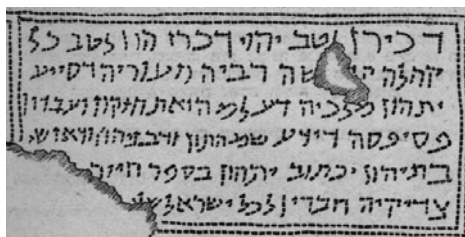 דכירן לטב יהוי דכרנהון לטב כל
קהלה רביה וזעוריה דסייע
יתהון מלכיה דעלמה ואתחזקון ועבדון
פסיפסה דידע שמהתהון ודבניהון ודאנשי
בתיהון יכתוב יתהון בספר חייה
צדיקיה חברין לכל ישראל